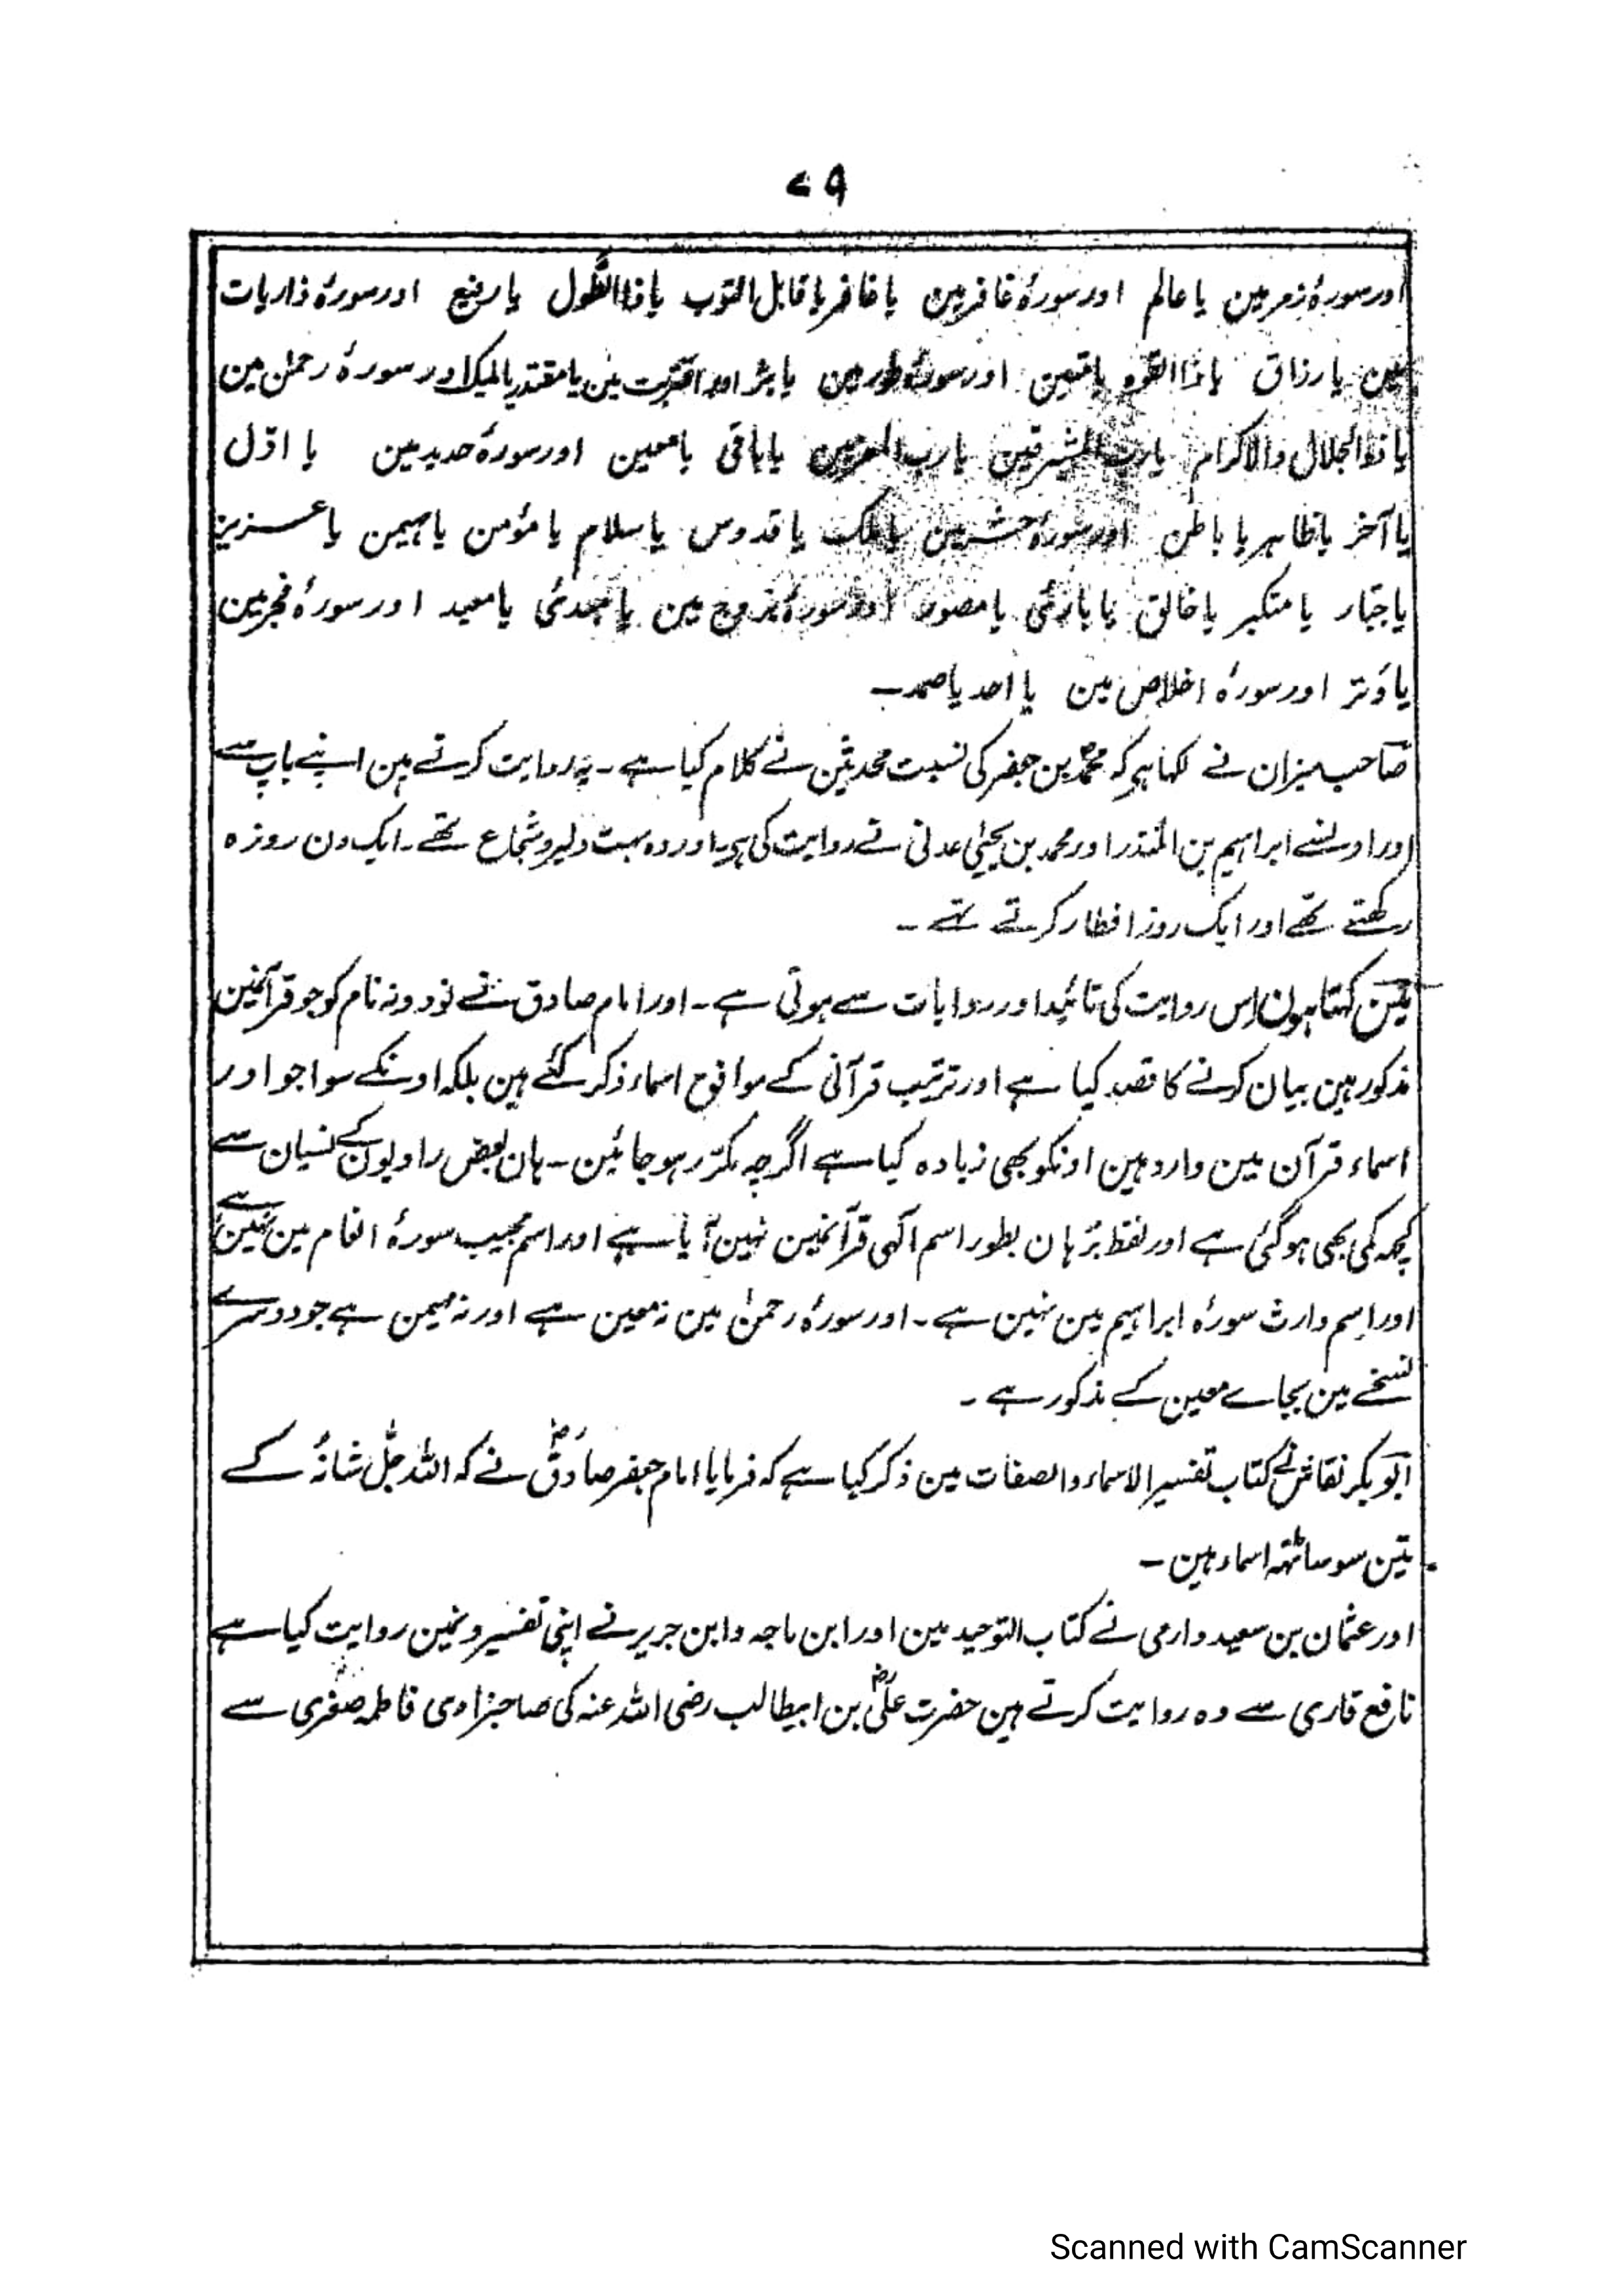 ۷۹
اور سورۂ زمر مین یا عالم اور سورۂ غافر مین یا غافر یا قابل التوب یا ذا الطّول یا رفیع اور سورۂ ذاریات
مین یا رزاق یا ذا القوۃ یا متین اور سورۂ طور مین یا بَرّ اور اقتربت مین یا مقتدر یا ملیک اور سورۂ رحمٰن مین
یا ذا الجلال والاکرام یا رب المشرقین یا رب المغربین یا باقی یا معین اور سورۂ حدید مین یا اوّل
یا آخر یا ظاہر یا باطن اور سورۂ حشر مین یا ملک یا قدوس یا سلام یا مؤمن یا مہیمن یا عزیز
یا جبّار یا متکبر یا خالق یا بارئی یا مصور اور سورۂ بروج مین یا مبدئی یا معید اور سورۂ فجر مین
یا وَتر اور سورۂ اخلاص مین یا احد یا صمد ۔
صاحب میزان نے لکھا ہر کہ محمدؐ بن جعفر کی نسبت محدثین نے کلام کیا ہے ۔ یہ روایت کرتے ہین اپنے باپ سے
اور اونسے ابراہیم بن المنذر اور محمد بن یحیٰی عدنی نے روایت کی ہر۔ اور وہ بہت دلیر و شجاع تھے ۔ ایک دن روزہ
رکھتے تھے اور ایک روز افطار کرتے تھے ۔
مین کہتا ہون اس روایت کی تائید اور روایات سے ہوتی ہے ۔ اور امام صادق نے نود و نہ نام کو جو قرآنمین
مذکور ہین بیان کرنے کا قصد کیا ہے اور ترتیب قرآنی کے موافق اسماء ذکر کئے ہین بلکہ اونکے سوا جو اور
اسماء قرآن مین وارد ہین اونکو بھی زیادہ کیا ہے اگرچہ مکرّر ہو جائین ۔ ہان بعض راویون کے نسیان سے
کچھ کمی بھی ہو گئی ہے اور لفظ بُرہان بطور اسم الٰہی قرآنمین نہین آیا ہے اور اسم مجیب سورۂ انعام مین نہین ہے
اور اسم وارث سورۂ ابراہیم مین نہین ہے ۔ اور سورۂ رحمٰن مین نہ معین ہے اور نہ مہیمن ہے جو دوسرے
نسخے مین بجاے معین کے مذکور ہے ۔
ابو بکر نقاش نے کتاب تفسیر الاسماء والصفات مین ذکر کیا ہے کہ فرمایا امام جعفر صادقؓ نے کہ اللہ جلّ شانہٗ کے
تین سو ساٹھ اسماء ہین ۔
اور عثمان بن سعید دارمی نے کتاب التوحید مین اور ابن ماجہ و ابن جریر نے اپنی تفسیرونمین روایت کیا ہے
نافع قاری سے وہ روایت کرتے ہین حضرت علیؓ بن ابیطالب رضی اللہ عنہ کی صاحبزادی فاطمہ صغری سے
Scanned with CamScanner